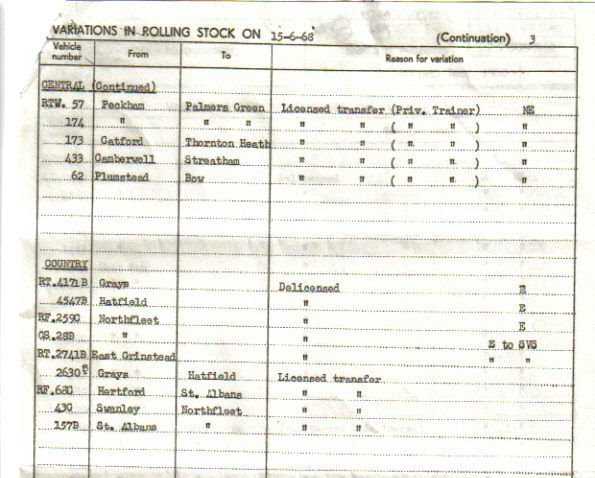 VARIATIONS IN ROLLING STOCK ON 15-6-68 (Continuation) 3
Vehicle number From To Reason for variation
CENTRAL (Continued)
RTW. 57 Peckham Palmers Green Licensed transfer (Priv. Trainer) NE
174 " " " " " ( " " ) "
173 Catford Thornton Heath " " ( " " ) "
433 Camberwell Streatham " " ( " " ) "
62 Plumstead Bow " " ( " " ) "
COUNTRY
RT.4171B Grays Delicensed E
4547B Hatfield " E
RF.259C Northfleet " E
GS.28B " " E to SVS
RT.2741B East Grinstead " " "
2630 Grays Hatfield Licensed transfer
RF.68C Hertford St. Albans " "
43C Swanley Northfleet " "
157B St. Albans " " "